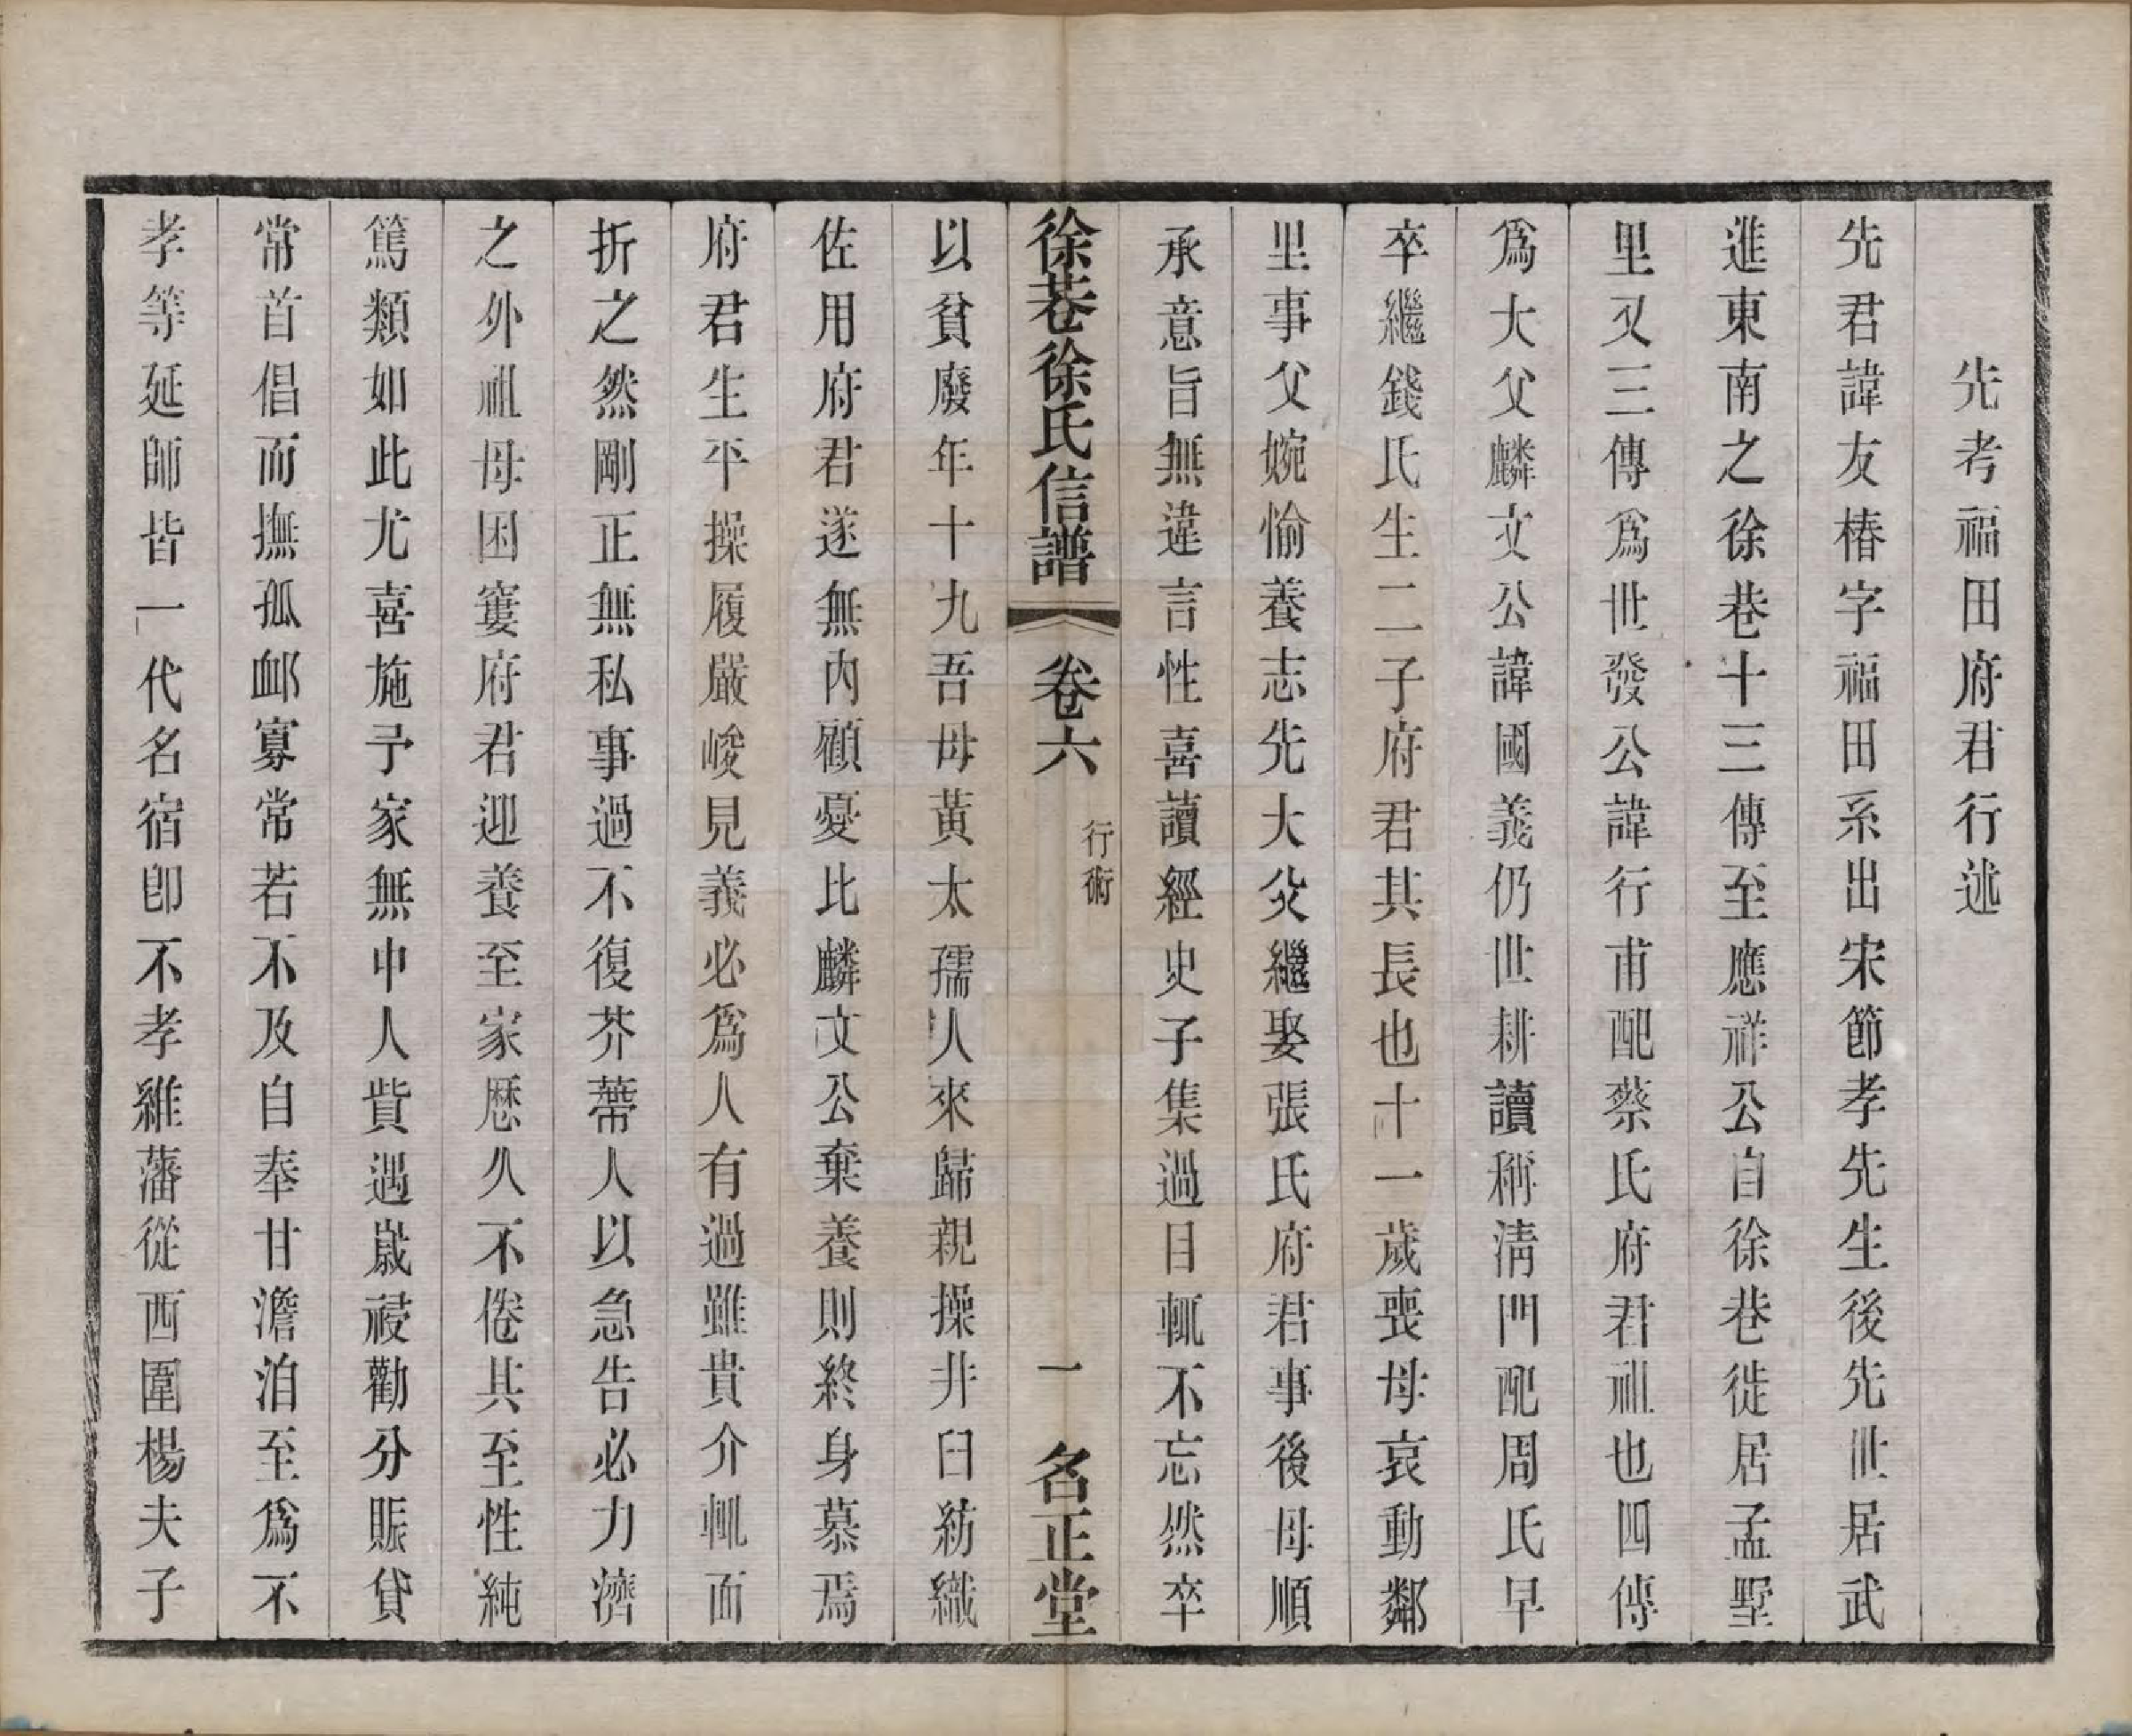 先考福田府君行述
先君諱友椿字福田系出宋節孝先生後先世居武
進東南之徐巷十三傳至應祥公自徐巷徙居孟墅
里又三傳爲世發公諱行甫配蔡氏府君祖也四傳
爲大父麟文公諱國義仍世耕讀稱淸門配周氏早
卒繼錢氏生二子府君其長也十一歲喪母哀動鄰
里事父婉愉養志先大父繼娶張氏府君事後母順
承意旨無違言性喜讀經史子集過目輒不忘然卒
徐巷徐氏信譜 卷六 行術 一 名正堂
以貧廢年十九吾母黃太孺人來歸親操井臼紡織
佐用府君遂無內顧憂比麟文公棄養則終身慕焉
府君生平操履嚴峻見義必爲人有過雖貴介輒面
折之然剛正無私事過不復芥蔕人以急告必力濟
之外祖母困窶府君迎養至家歷久不倦其至性純
篤類如此尤喜施予家無中人貲遇歲祲勸分賑貸
常首倡而撫孤卹寡常若不及自奉甘澹泊至爲不
孝等延師皆一代名宿卽不孝維藩從西圍楊夫子